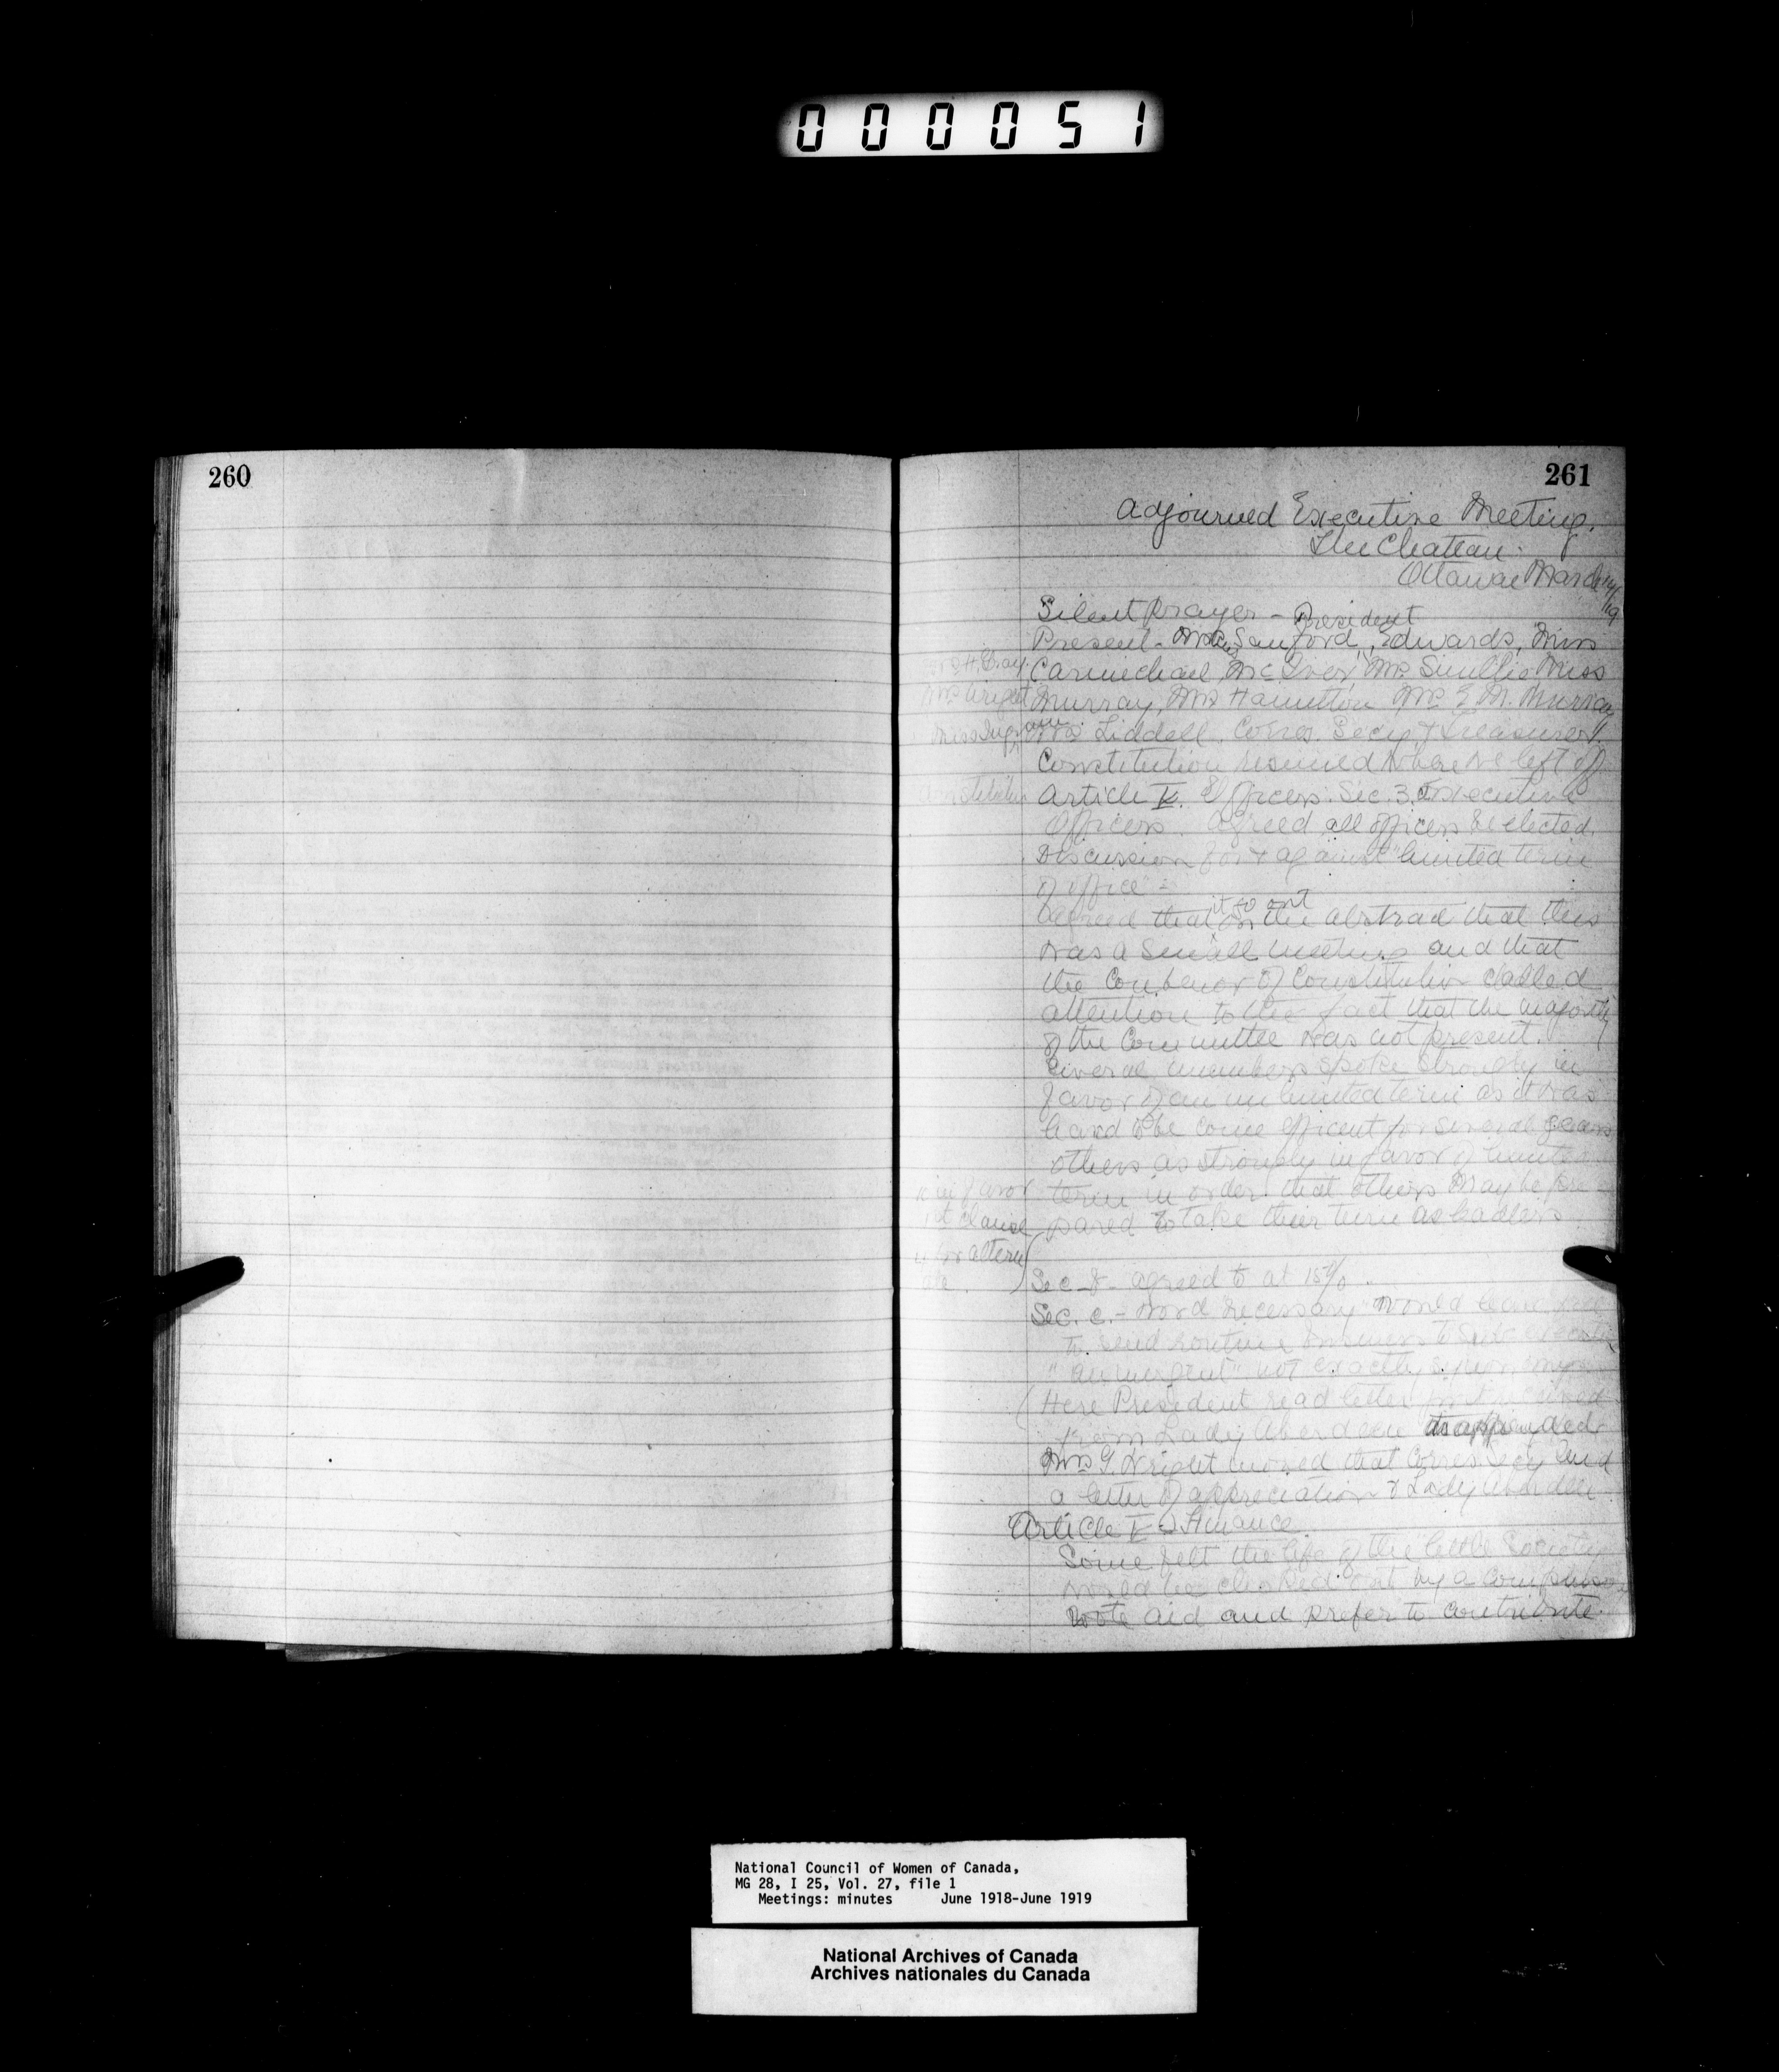 000051
260
261
Adjourned Executive Meeting.
The Chateau.
Ottawa March 14/19
Silent Prayer – President
Present – Mrs Sanford, Edwards, Miss
Mrs H. Gray. Carmichael, McIver, Mrs. Smillie Miss
Mrs Wright Murray, Mrs Hamilton Mrs. E. M. Murray
Miss Ingram Mrs Liddell. Corres. Secy & Treasurer.
Constitution resumed where we left off
Constitution Article V. Officers. Sec. 3. Executive
Officers. Agreed all officers be elected.
Discussion for & against "limited term
of office" –
Agreed that it go out in the abstract that this
was a small meeting and that
the Convenor of Constitution called
attention to the fact that the majority
of the Committee was not present.
Several members spoke strongly in
favor of an unlimited term as it was
hard to become efficent for several years
others as strongly in favor of limited
in favor term in order that others may be pre
1st clause pared to take their turn as leaders
for altern
ate.
Sec. b – agreed to at 15%.
Sec. c. – word "necessary" would
to send routine business to Sub-executive
not exactly
(Here President read letter just received
from Lady Aberdeen As appended
Mrs G. Wright moved that Corres Secy send
a letter of appreciation to Lady Aberdeen
Article V Finance
Some felt the life of the little Society
would be choked out by a compulsory
aid and prefer to contribute.
National Council of Women of Canada,
MG 28, I 25, Vol. 27, file 1
Meetings: minutes June 1918-June 1919
National Archives of Canada
Archives nationales du Canada